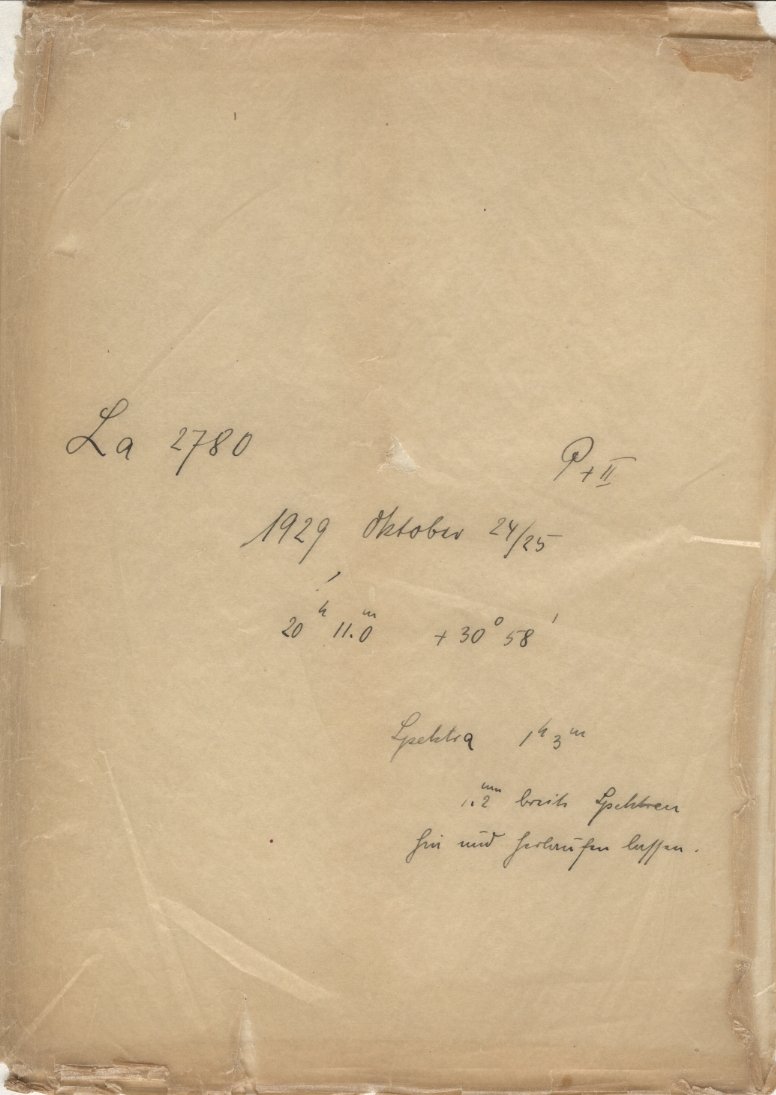 La 2780 P + II
1929 Oktober 24/25
20ʰ 11.ᵐ0 + 30° 58'
Spektra 1ʰ 3ᵐ
1.ᵐᵐ2 breite Spektren
hin und herlaufen lassen.